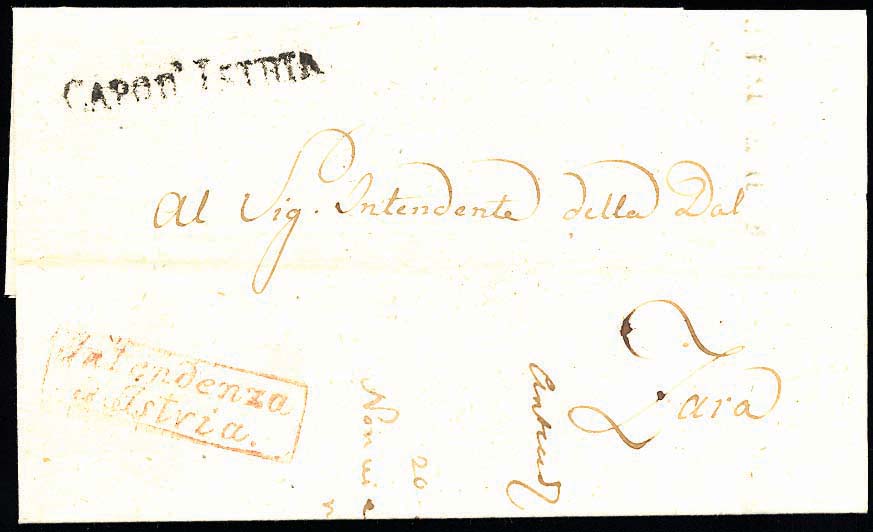 CAPOD' ISTRIA
Al Sig. Intendente della Dal
Zara
Intendenza
d'Istria.
20